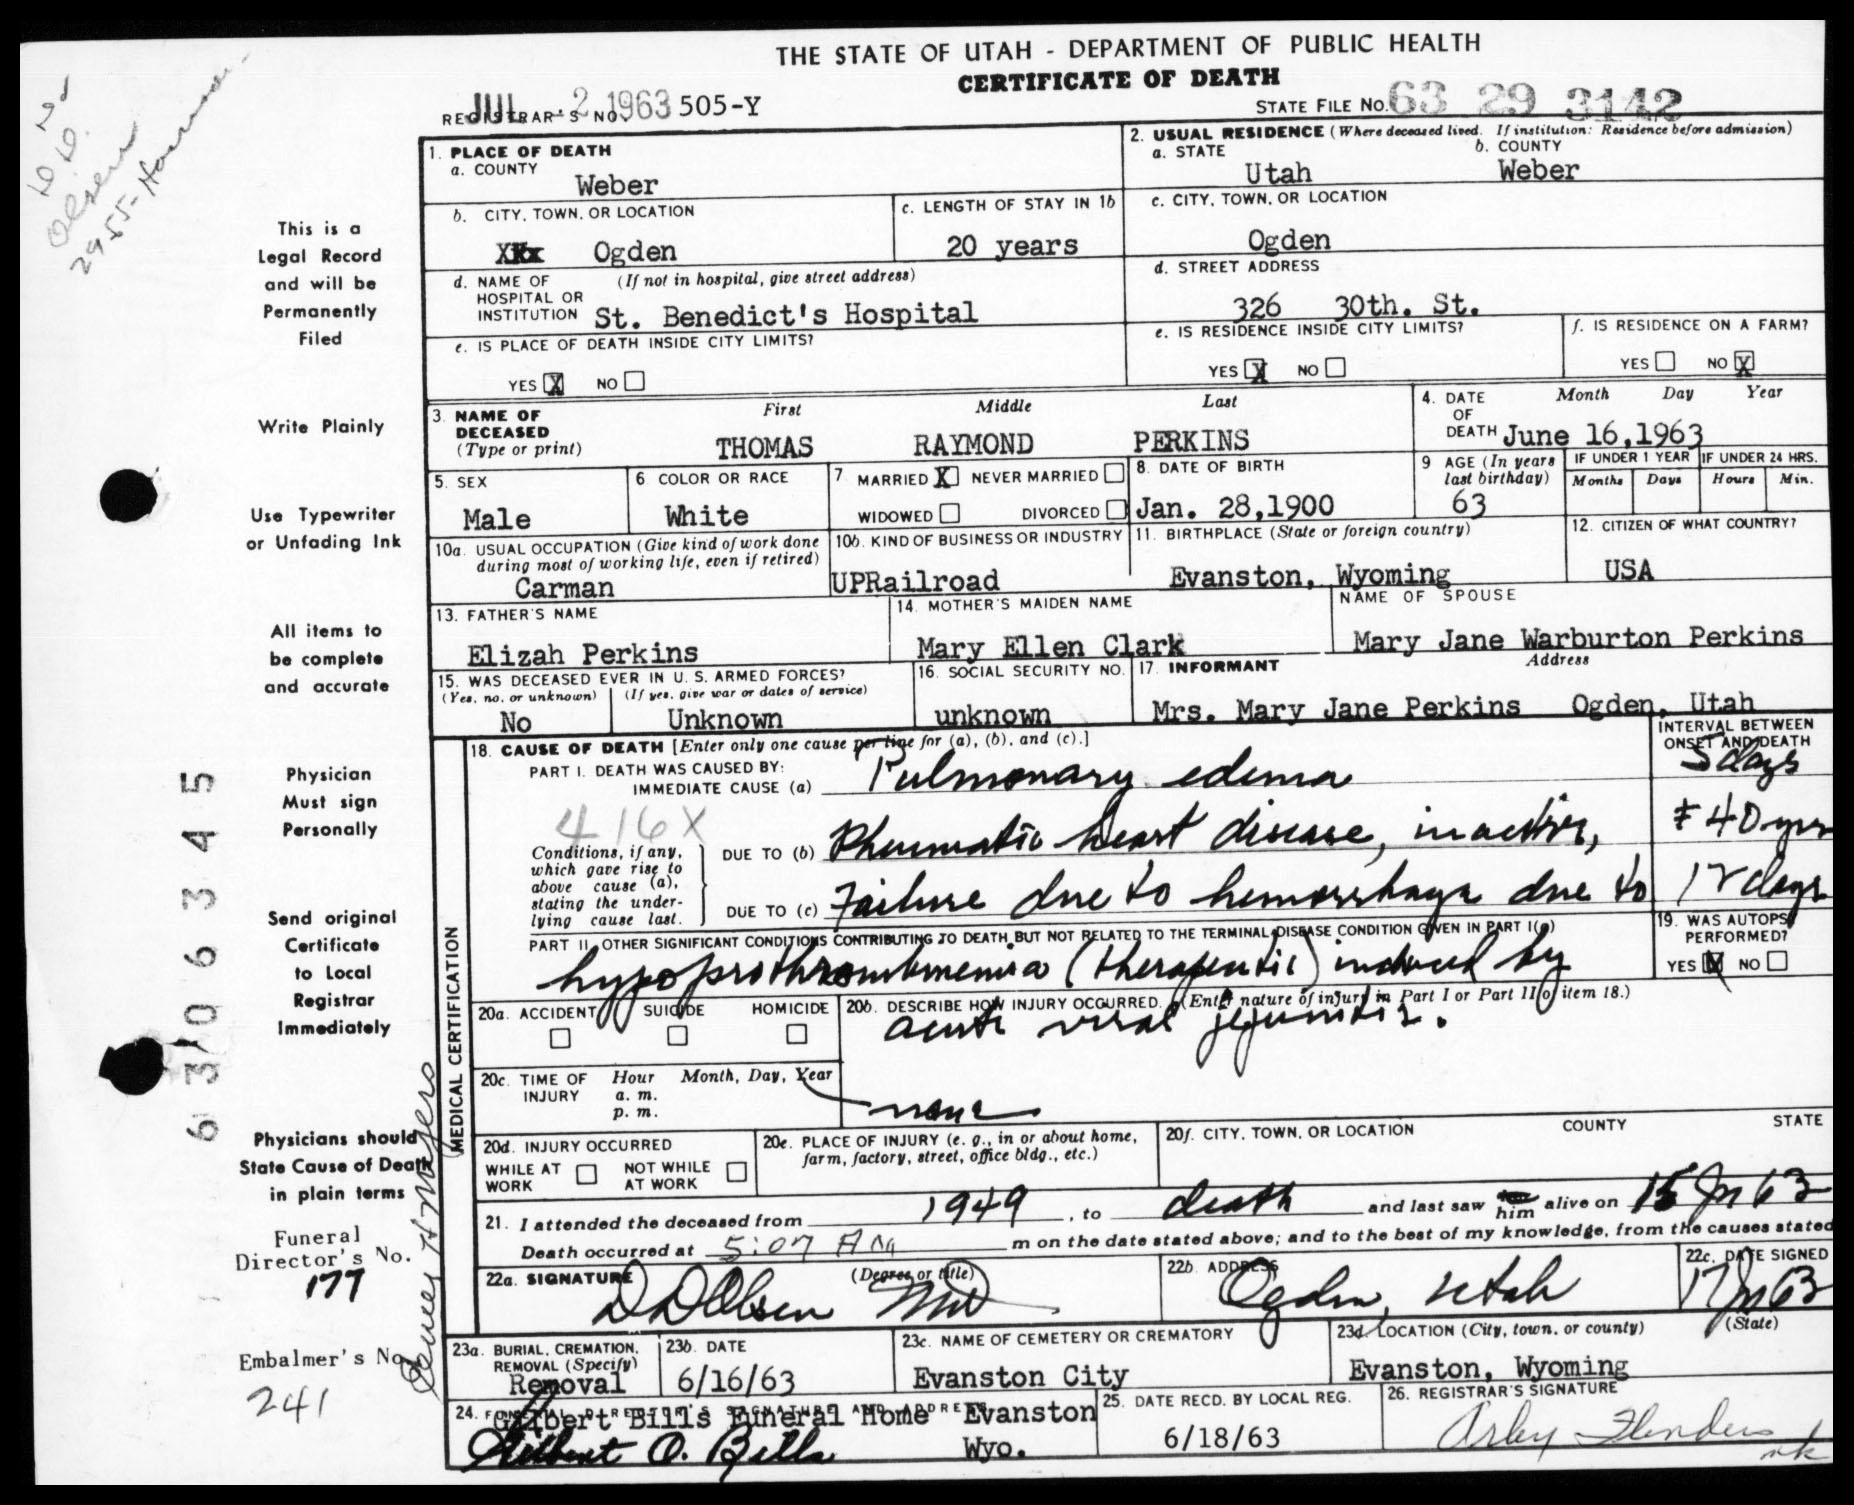 THE STATE OF UTAH - DEPARTMENT OF PUBLIC HEALTH
CERTIFICATE OF DEATH
REGISTRAR'S NO. JUL -2 1963 505-Y
STATE FILE NO. 63 29 3142
D. D.
Olsen
2955-Harrison
1. PLACE OF DEATH
a. COUNTY
Weber
2. USUAL RESIDENCE (Where deceased lived. If institution: Residence before admission)
a. STATE
Utah
b. COUNTY
Weber
b. CITY, TOWN, OR LOCATION
Ogden
c. LENGTH OF STAY IN 1b
20 years
c. CITY, TOWN, OR LOCATION
Ogden
d. NAME OF HOSPITAL OR INSTITUTION
(If not in hospital, give street address)
St. Benedict's Hospital
d. STREET ADDRESS
326 30th. St.
e. IS PLACE OF DEATH INSIDE CITY LIMITS?
YES X NO
e. IS RESIDENCE INSIDE CITY LIMITS?
YES X NO
f. IS RESIDENCE ON A FARM?
YES NO X
3. NAME OF DECEASED (Type or print)
First Middle Last
THOMAS RAYMOND PERKINS
4. DATE OF DEATH
Month Day Year
June 16,1963
5. SEX
Male
6 COLOR OR RACE
White
7 MARRIED X NEVER MARRIED
WIDOWED DIVORCED
8. DATE OF BIRTH
Jan. 28,1900
9 AGE (In years last birthday)
63
IF UNDER 1 YEAR
Months Days
IF UNDER 24 HRS.
Hours Min.
10a. USUAL OCCUPATION (Give kind of work done during most of working life, even if retired)
Carman
10b. KIND OF BUSINESS OR INDUSTRY
UPRailroad
11. BIRTHPLACE (State or foreign country)
Evanston, Wyoming
12. CITIZEN OF WHAT COUNTRY?
USA
13. FATHER'S NAME
Elizah Perkins
14. MOTHER'S MAIDEN NAME
Mary Ellen Clark
NAME OF SPOUSE
Mary Jane Warburton Perkins
15. WAS DECEASED EVER IN U. S. ARMED FORCES?
(Yes, no, or unknown) (If yes, give war or dates of service)
No Unknown
16. SOCIAL SECURITY NO.
unknown
17. INFORMANT Address
Mrs. Mary Jane Perkins Ogden, Utah
MEDICAL CERTIFICATION
18. CAUSE OF DEATH [Enter only one cause per line for (a), (b), and (c).]
INTERVAL BETWEEN ONSET AND DEATH
PART I. DEATH WAS CAUSED BY:
IMMEDIATE CAUSE (a) Pulmonary edema
5 days
416X
Conditions, if any, which gave rise to above cause (a), stating the underlying cause last.
DUE TO (b) Rheumatic heart disease, inactive,
± 40 yrs
DUE TO (c) Failure due to hemorrhage due to
12 days
PART II. OTHER SIGNIFICANT CONDITIONS CONTRIBUTING TO DEATH BUT NOT RELATED TO THE TERMINAL DISEASE CONDITION GIVEN IN PART I(a)
hypoprothrombinemia (therapeutic) induced by
acute viral jejunitis.
19. WAS AUTOPSY PERFORMED?
YES X NO
20a. ACCIDENT SUICIDE HOMICIDE
20b. DESCRIBE HOW INJURY OCCURRED. (Enter nature of injury in Part I or Part II of item 18.)
20c. TIME OF INJURY
Hour Month, Day, Year
a. m.
p. m.
none
20d. INJURY OCCURRED
WHILE AT WORK NOT WHILE AT WORK
20e. PLACE OF INJURY (e. g., in or about home, farm, factory, street, office bldg., etc.)
20f. CITY, TOWN, OR LOCATION COUNTY STATE
21. I attended the deceased from 1949, to death and last saw him alive on 15 Jn 63
Death occurred at 5:07 AM m on the date stated above; and to the best of my knowledge, from the causes stated
22a. SIGNATURE (Degree or title)
D D Olsen MD
22b. ADDRESS
Ogden, Utah
22c. DATE SIGNED
17 Jn 63
23a. BURIAL, CREMATION, REMOVAL (Specify)
Removal
23b. DATE
6/16/63
23c. NAME OF CEMETERY OR CREMATORY
Evanston City
23d. LOCATION (City, town, or county) (State)
Evanston, Wyoming
24. FUNERAL DIRECTOR'S SIGNATURE AND ADDRESS
Gilbert Bills Funeral Home Evanston
Wyo.
Gilbert O. Bills
25. DATE RECD. BY LOCAL REG.
6/18/63
26. REGISTRAR'S SIGNATURE
This is a
Legal Record
and will be
Permanently
Filed
Write Plainly
Use Typewriter
or Unfading Ink
All items to
be complete
and accurate
Physician
Must sign
Personally
Send original
Certificate
to Local
Registrar
Immediately
Physicians should
State Cause of Death
in plain terms
Funeral
Director's No.
177
Embalmer's No.
241
63 06345